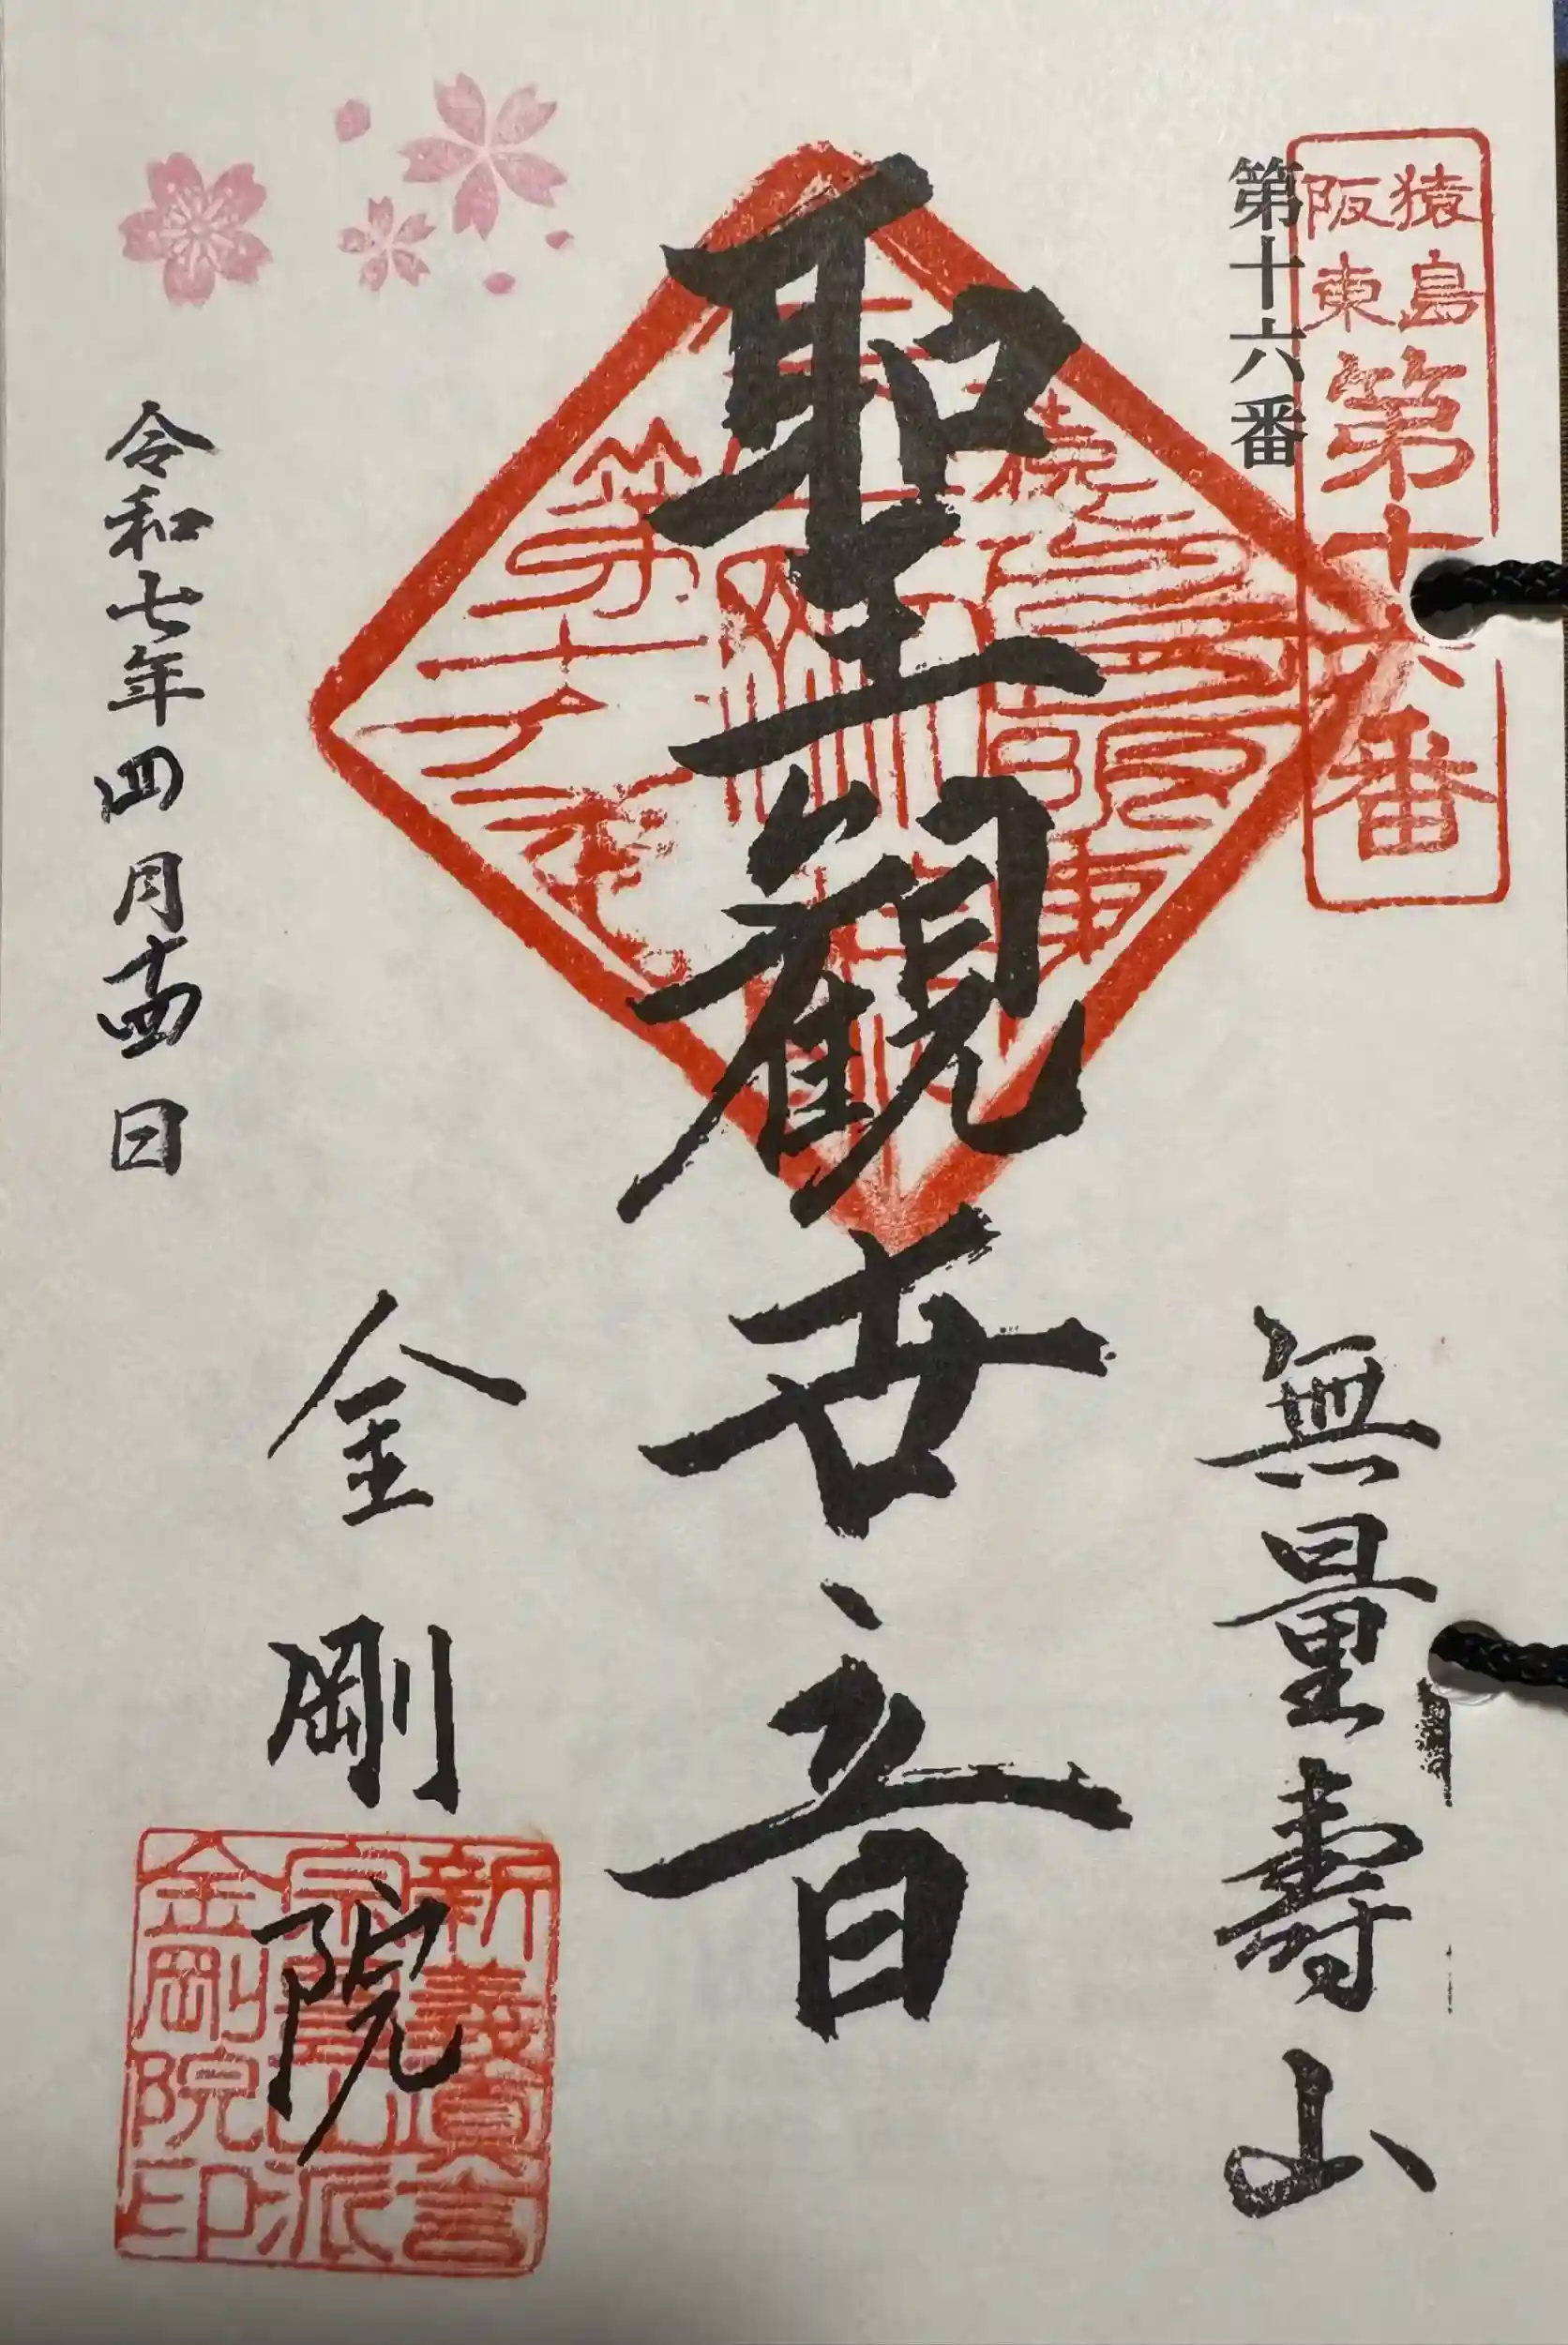 猿島
阪東
第十六番
第十六番
無量壽山
聖観世音
猿島阪東
第十六番
令和七年四月十四日
金剛院
新義真言
宗豊山派
金剛院印